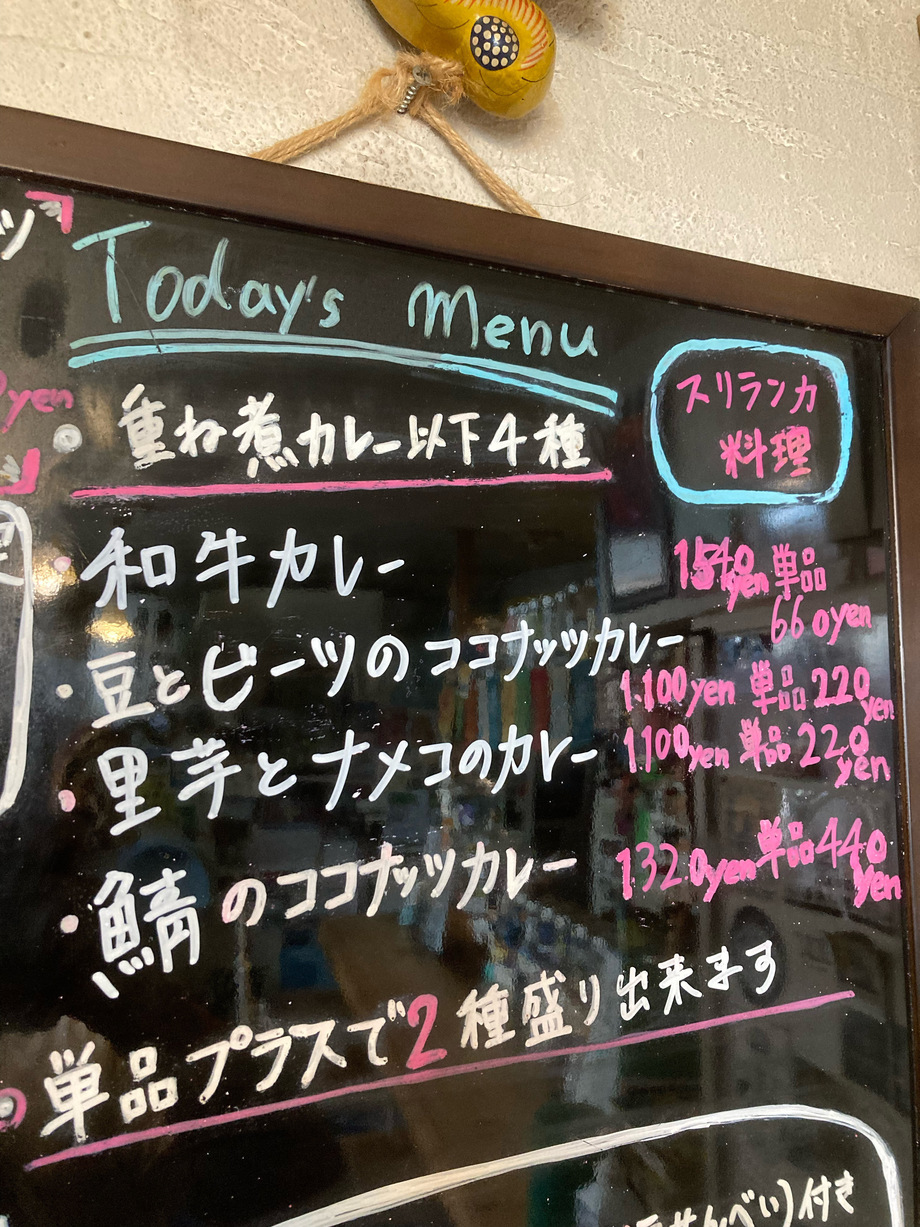 Today's Menu
スリランカ
料理
重ね煮カレー以下4種
・和牛カレー 1540yen 単品
660yen
・豆とビーツのココナッツカレー 1.100yen 単品220yen
・里芋とナメコのカレー 1100yen 単品220yen
・鯖のココナッツカレー 1320yen 単品440yen
単品プラスで2種盛り出来ます
せんべい)付き
yen